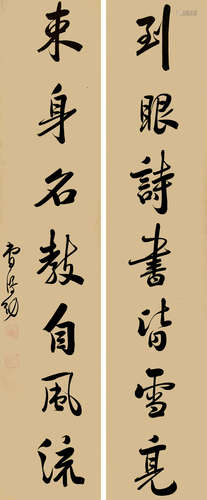 到眼詩書皆雪亮
束身名教自風流
曹鴻勛